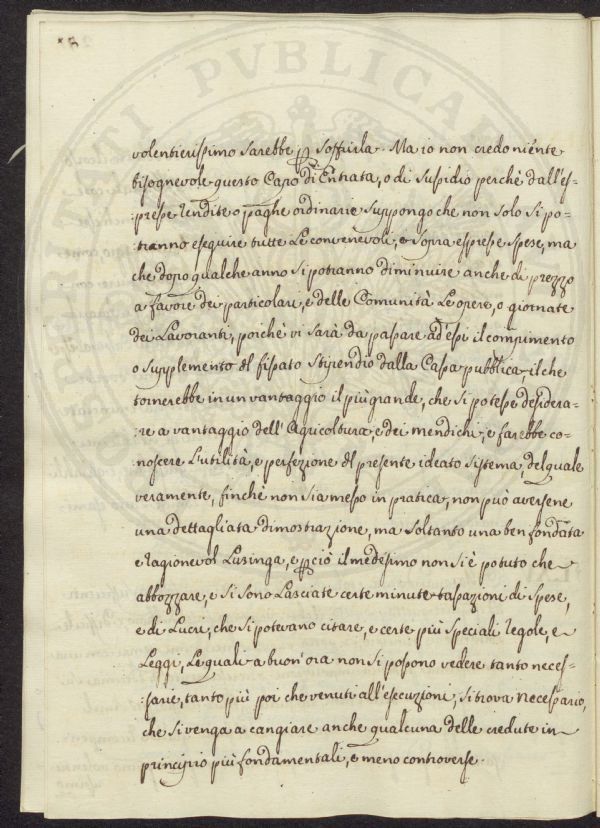 volentierissimo sarebbe p soffrirla. Ma io non credo niente
bisognevole questo Capo di Entrata, o di sussidio perchè dall'es-
:presse rendite o paghe ordinarie suppongo che non solo si po-
:tranno eseguire tutte le convenevoli, e sopra espresse spese, ma
che dopo qualche anno si potranno diminuire anche di prezzo
a favore dei particolari, e delle Comunità le opere, o giornate
dei Lavoranti, poichè vi sarà da passare ad essi il compimento
o supplemento del fissato stipendio dalla Cassa pubblica, il che
tornerebbe in un vantaggio il più grande, che si potesse desidera-
:re a vantaggio dell'Agricoltura, e dei mendichi, e farebbe co-
:noscere l'utilità, e perfezione del presente ideato sistema, del quale
veramente, finchè non sia messo in pratica, non può aversene
una dettagliata dimostrazione, ma soltanto una ben fondata
e ragionevol Lusinga, e pciò il medesimo non si è potuto che
abbozzare, e si sono lasciate certe minute tassazioni di spese,
e di Lucri, che si potevano citare, e certe più speciali regole, e
Leggi, le quali a buon'ora non si possono vedere tanto neces-
:sarie, tanto più poi che venuti all'esecuzioni, si trova necessario,
che si venga a cangiare anche qualcuna delle credute in
principio più fondamentali, e meno controverse.
PUBLICAE